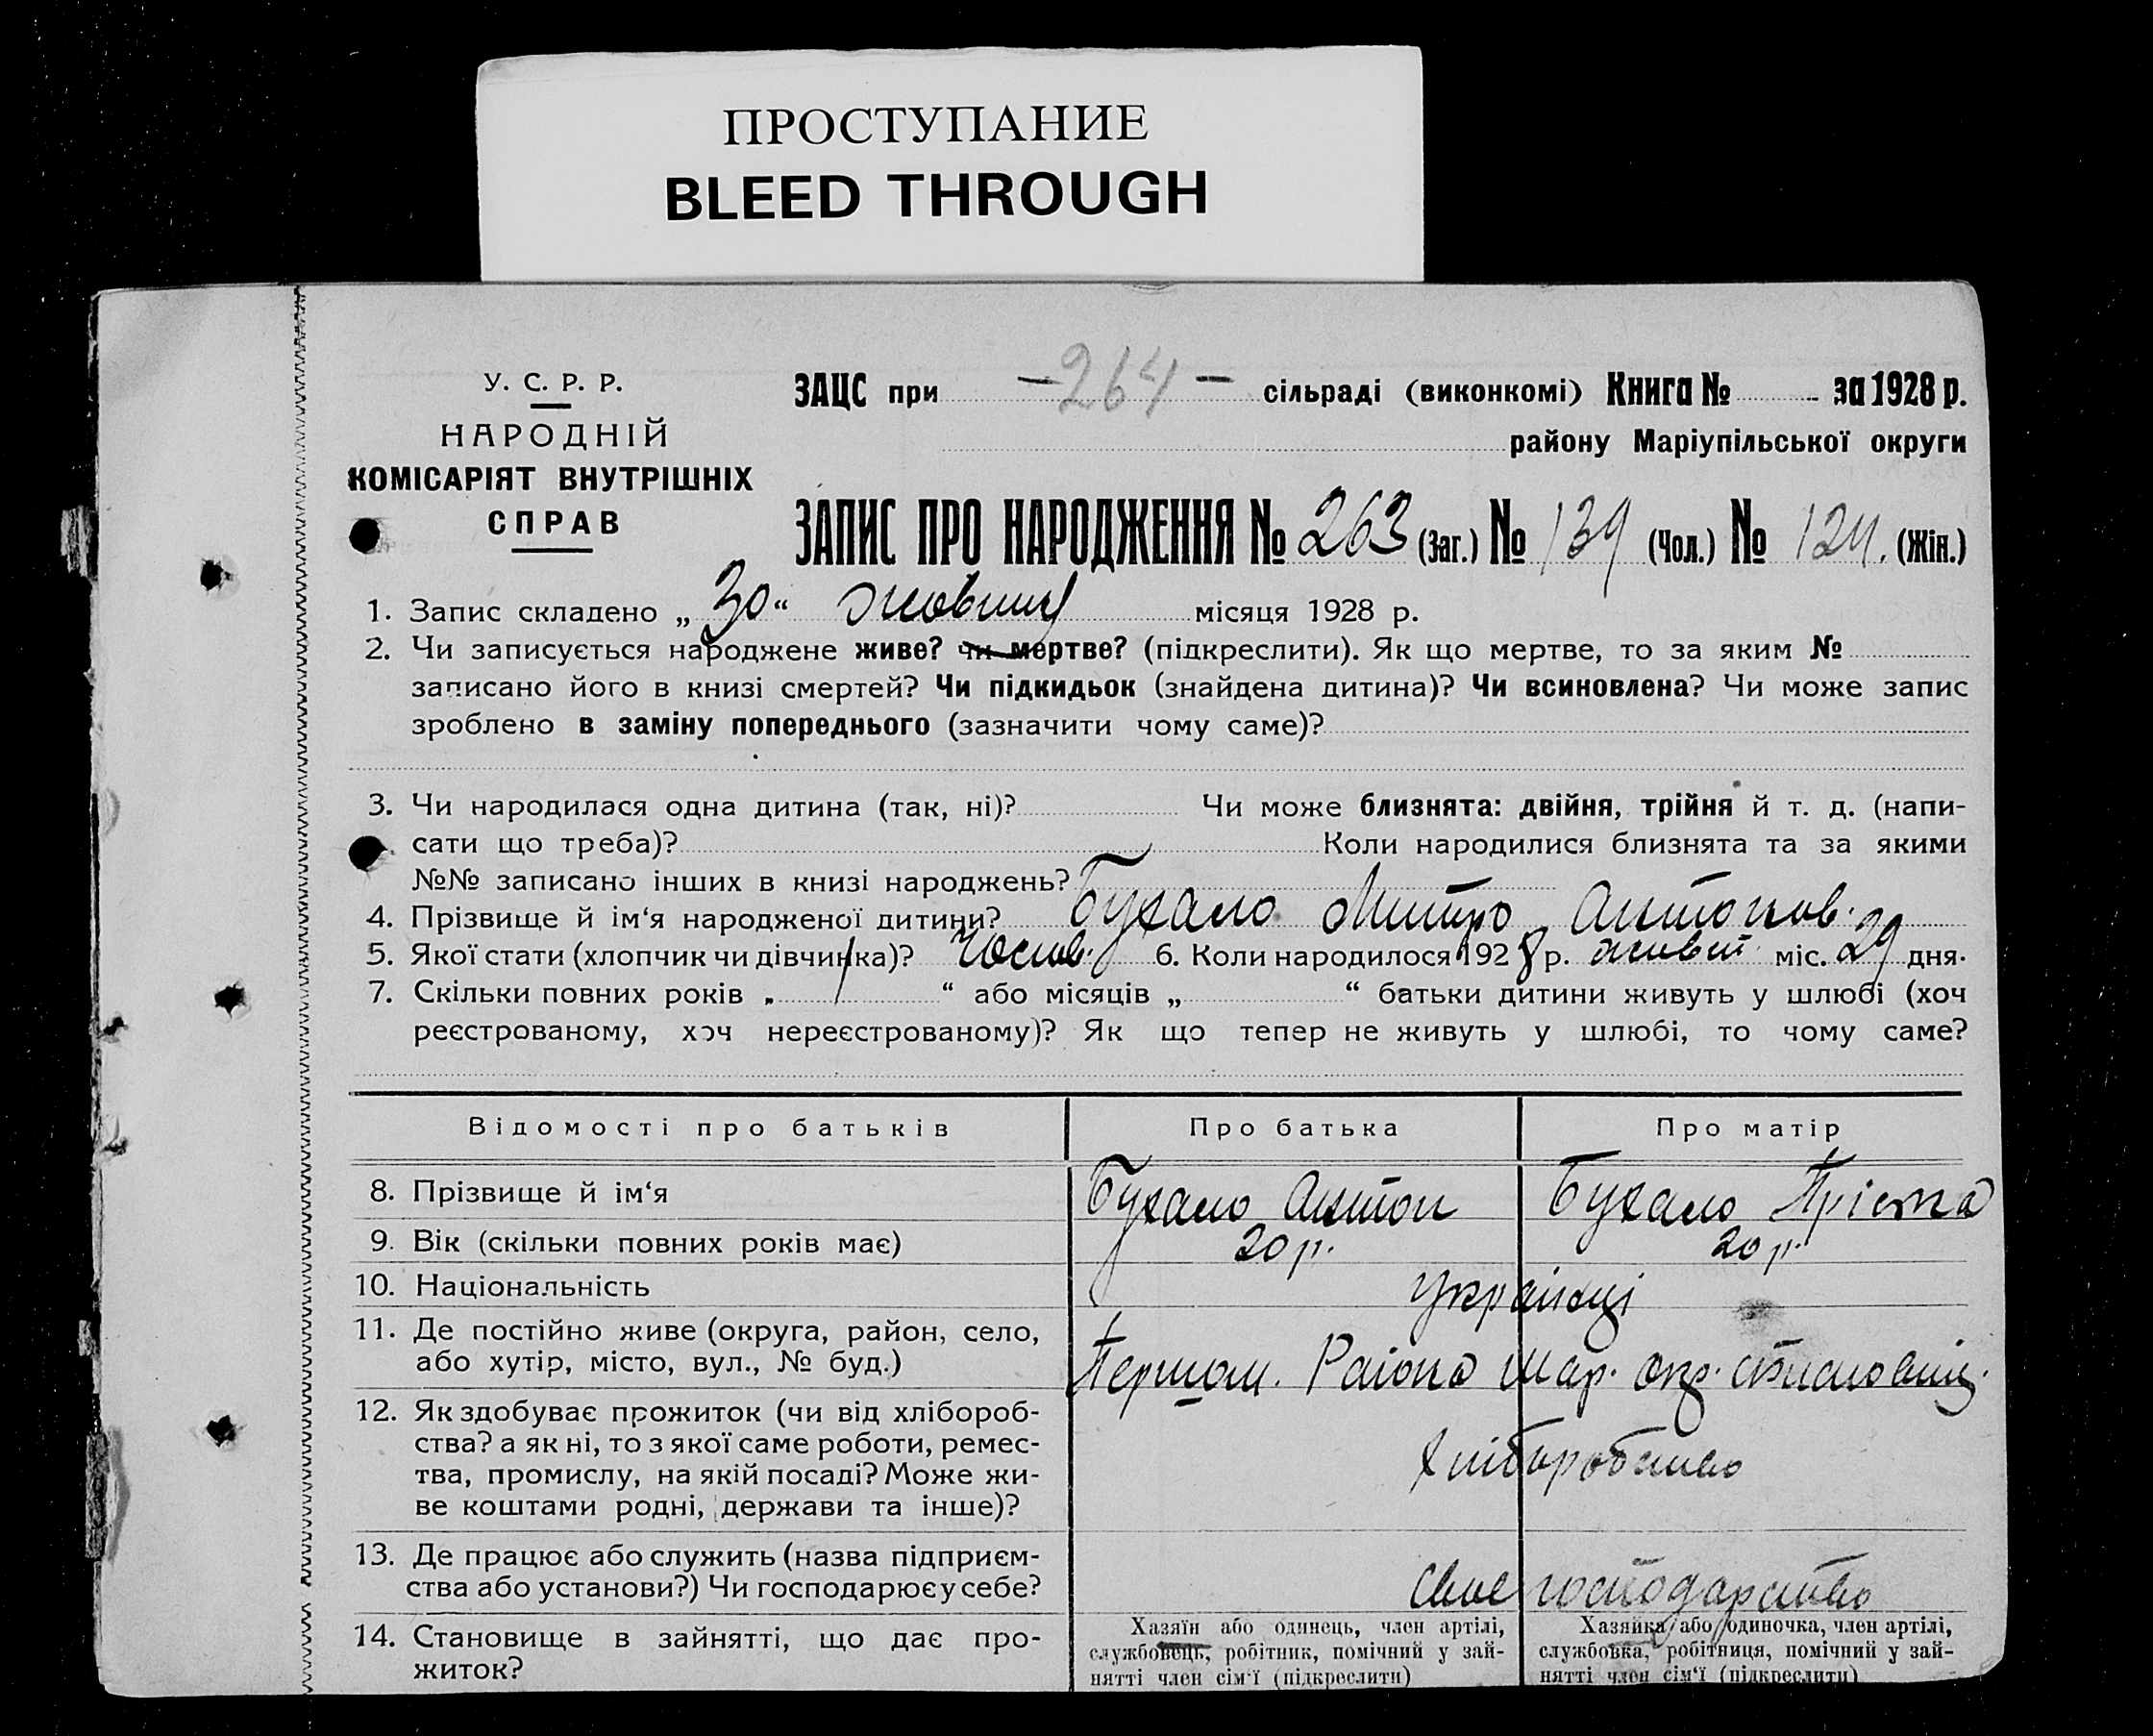 ПРОСТУПАНИЕ
BLEED THROUGH
У. С. Р. Р.
НАРОДНІЙ
КОМІСАРІЯТ ВНУТРІШНІХ
СПРАВ
ЗАЦС при -264- сільраді (виконкомі) Книга № за 1928 р.
району Маріупільської округи
ЗАПИС ПРО НАРОДЖЕННЯ № 263 (Заг.) № 139 (Чол.) № 124. (Жін.)
1. Запис складено „30“ жовтня місяця 1928 р.
2. Чи записується народжене живе? чи мертве? (підкреслити). Як що мертве, то за яким №
записано його в книзі смертей? Чи підкидьок (знайдена дитина)? Чи всиновлена? Чи може запис
зроблено в заміну попереднього (зазначити чому саме)?
3. Чи народилася одна дитина (так, ні)? Чи може близнята: двійня, трійня й т. д. (напи-
сати що треба)? Коли народилися близнята та за якими
№№ записано інших в книзі народжень?
4. Прізвище й ім‘я народженої дитини? Бухало Митро Антонов.
5. Якої стати (хлопчик чи дівчинка)? Чолов. 6. Коли народилося 1928 р. жовт. міс. 29 дня.
7. Скільки повних років „ 1 “ або місяців „ “ батьки дитини живуть у шлюбі (хоч
реєстрованому, хоч нереєстрованому)? Як що тепер не живуть у шлюбі, то чому саме?
Відомості про батьків Про батька Про матір
8. Прізвище й ім‘я Бухало Антон Бухало
9. Вік (скільки повних років має) 20 р. 20 р.
10. Національність Українці
11. Де постійно живе (округа, район, село,
або хутір, місто, вул., № буд.) Першом. Раіона Мар. окр.
12. Як здобуває прожиток (чи від хлібороб-
ства? а як ні, то з якої саме роботи, ремес-
тва, промислу, на якій посаді? Може жи-
ве коштами родні, держави та інше)? Хліборобство
13. Де працює або служить (назва підприєм-
ства або установи?) Чи господарює у себе? Своє господарство
14. Становище в зайнятті, що дає про-
житок?
Хазяїн або одинець, член артілі,
службовець, робітник, помічний у зай-
нятті член сім‘ї (підкреслити)
Хазяйка або одиночка, член артілі,
службовка, робітниця, помічний у зай-
нятті член сім‘ї (підкреслити)